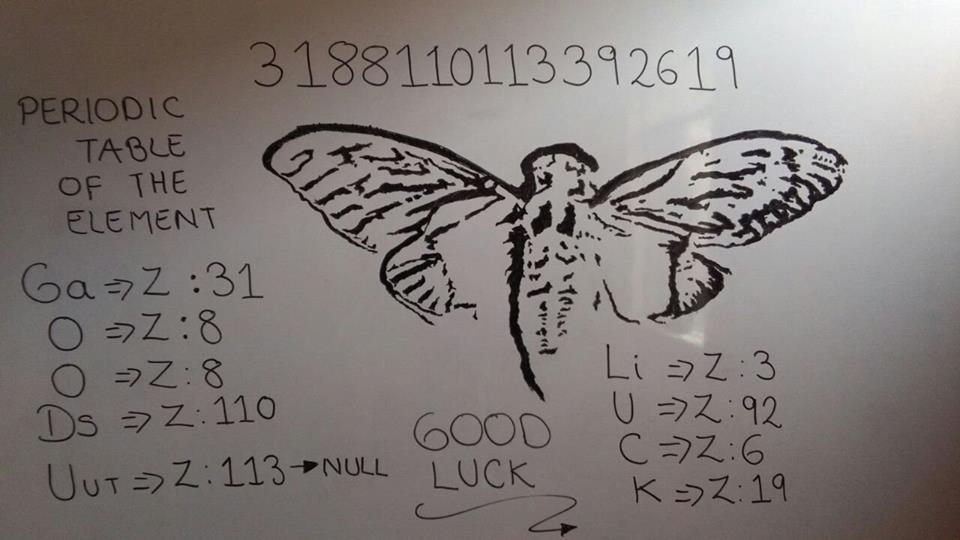 3188110113392619
PERIODIC
TABLE
OF THE
ELEMENT
Ga => Z : 31
O => Z : 8
O => Z : 8
Ds => Z : 110
UUT => Z : 113 → NULL
GOOD
LUCK
Li => Z : 3
U => Z : 92
C => Z : 6
K => Z : 19